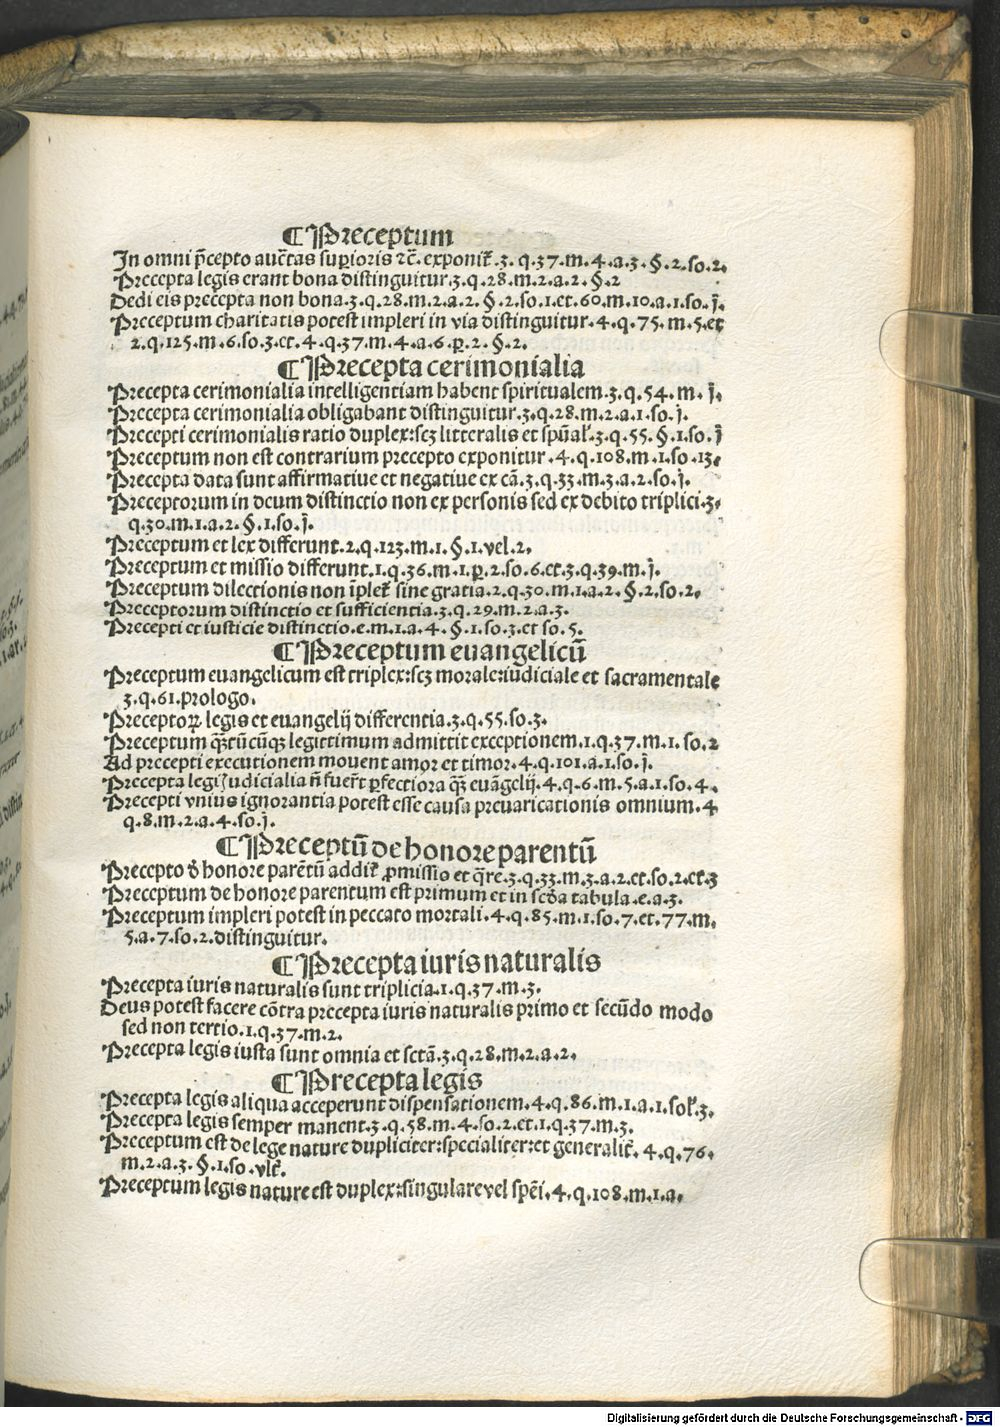 ¶Preceptum
In omni p̄cepto auc̄tas suꝑioris ⁊c̄. exponit᷑.3. q.37.m.4.a.3.§.2.so.2.
Precepta legis erant bona distinguitur.3.q.28.m.2.a.2.§.2
Dedi eis precepta non bona.3.q.28.m.2.a.2.§.2.so.1.et.60.m.10.a.1.so.j̄.
Preceptum charitatis potest impleri in via distinguitur.4.q.75.m.5.et
2.q.125.m.6.so.3.et.4.q.37.m.4.a.6.ꝑ.2.§.2.
¶Precepta cerimonialia
Precepta cerimonialia intelligentiam habent spiritualem.3.q.54.m.j̄.
Precepta cerimonialia obligabant distinguitur.3.q.28.m.2.a.1.so.j̄.
Precepti cerimonialis ratio duplex:scꝫ litteralis et spūal᷑.3.q.55.§.1.so.j̄
Preceptum non est contrarium precepto exponitur.4.q.108.m.1.so.13.
Precepta data sunt affirmatiue et negatiue ex cā.3.q.33.m.3.a.2.so.j̄.
Preceptorum in deum distinctio non ex personis sed ex debito triplici.3.
q.30.m.1.a.2.§.1.so.j̄.
Preceptum et lex differunt.2.q.123.m.1.§.1.vel.2.
Preceptum et missio differunt.1.q.36.m.1.ꝑ.2.so.6.et.3.q.39.m.j̄.
Preceptum dilectionis non īplet᷑ sine gratia.2.q.30.m.1.a.2.§.2.so.2.
Preceptorum distinctio et sufficientia.3.q.29.m.2.a.3.
Precepti et iusticie distinctio.e.m.1.a.4.§.1.so.3.et so.5.
¶Preceptum euangelicū
Preceptum euangelicum est triplex:scꝫ morale:iudiciale et sacramentale
3.q.61.prologo.
Preceptoꝝ legis et euangelij differentia.3.q.55.so.3.
Preceptum q̄ꝫtūcūqꝫ legittimum admittit exceptionem.1.q.37.m.1.so.2
Ad precepti executionem mouent amor et timor.4.q.101.a.1.so.j̄.
Precepta legis iudicialia nō fuer̄t ꝑfectiora q̄ꝫ euāgelij.4.q.6.m.5.a.1.so.4.
Precepti vnius ignorantia potest esse causa preuaricationis omnium.4
q.8.m.2.a.4.so.j̄.
¶Preceptū de honore parentū
Precepto d̄ honore parētū addit᷑ ꝓmissio et q̄re.3.q.33.m.3.a.2.et.so.2.et.3
Preceptum de honore parentum est primum et in scd̄a tabula.e.a.3.
Preceptum impleri potest in peccato mortali.4.q.85.m.1.so.7.et.77.m.
5.a.7.so.2.distinguitur.
¶Precepta iuris naturalis
Precepta iuris naturalis sunt triplicia.1.q.37.m.3.
Deus potest facere cōtra precepta iuris naturalis primo et secūdo modo
sed non tertio.1.q.37.m.2.
Precepta legis iusta sunt omnia et sctā.3.q.28.m.2.a.2.
¶Precepta legis
Precepta legis aliqua acceperunt dispensationem.4.q.86.m.1.a.1.sol᷑.3.
Precepta legis semper manent.3.q.58.m.4.so.2.et.1.q.37.m.3.
Preceptum est de lege nature dupliciter:specialiter:et generalit᷑.4.q.76.
m.2.a.3.§.1.so.vlt᷑.
Preceptum legis nature est duplex:singulare vel spēi.4.q.108.m.1.a.
Digitalisierung gefördert durch die Deutsche Forschungsgemeinschaft - DFG